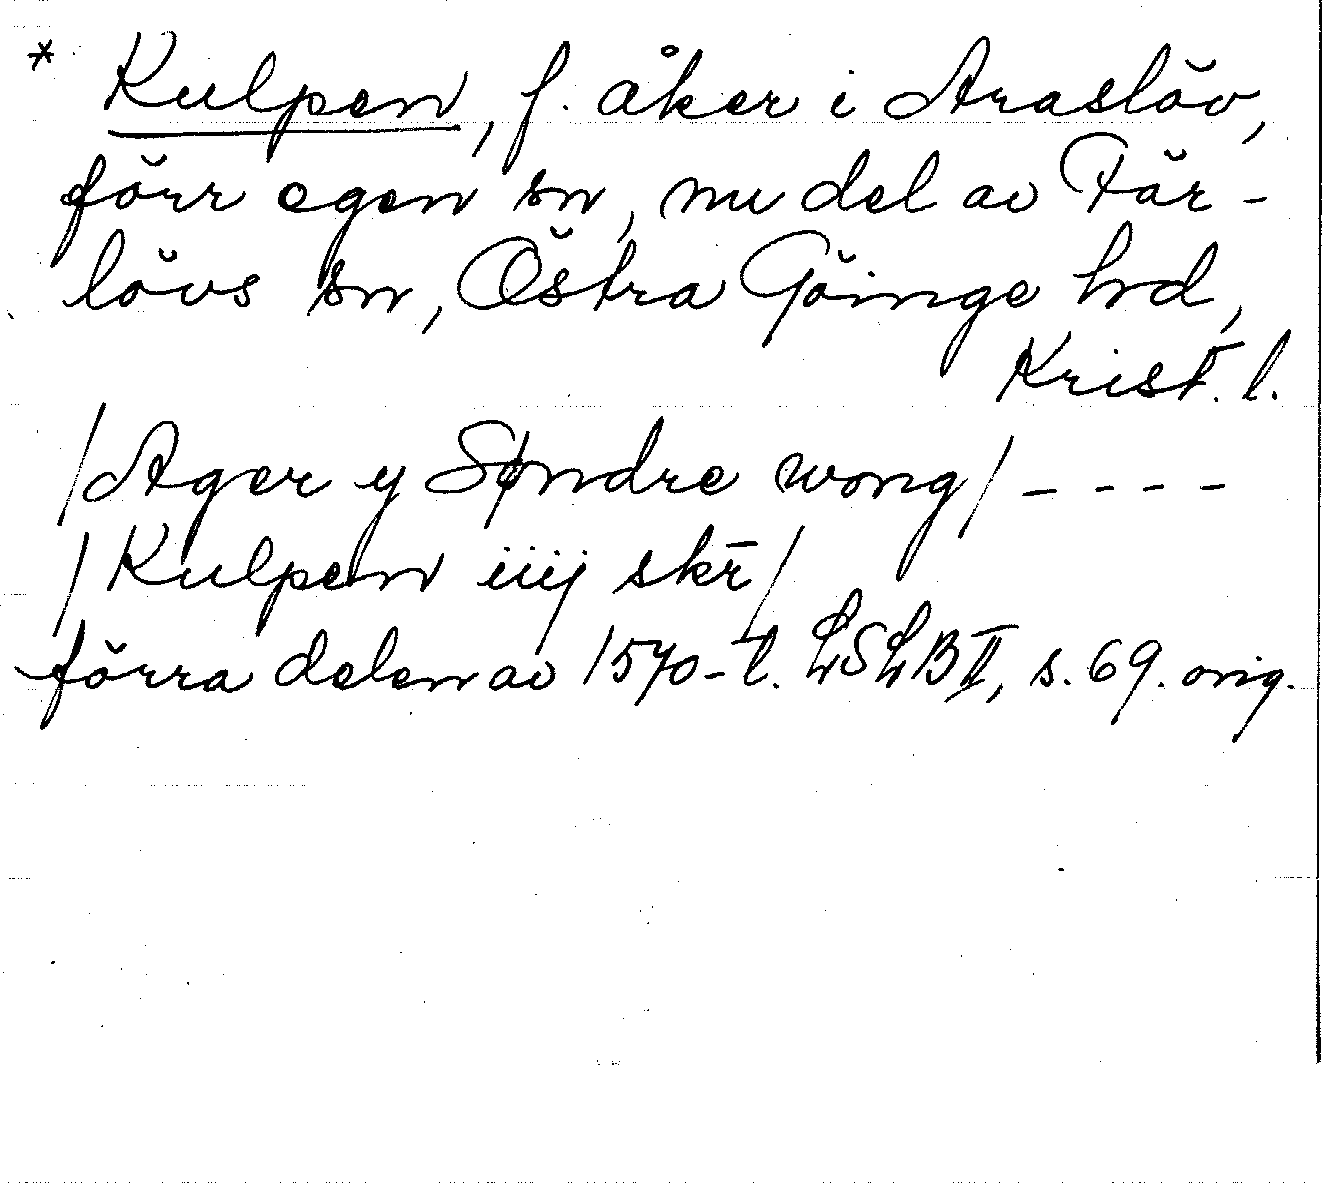 * Kulpen, f. åker i Araslöv,
förr egen sn, nu del av Fär-
lövs sn, Östra Göinge hd,
Krist. l.
/Ager y Søndre wong/ - - - -
/Kulpen iiij skr̄/
förra delen av 1570-t. LSLB II, s. 69. orig.